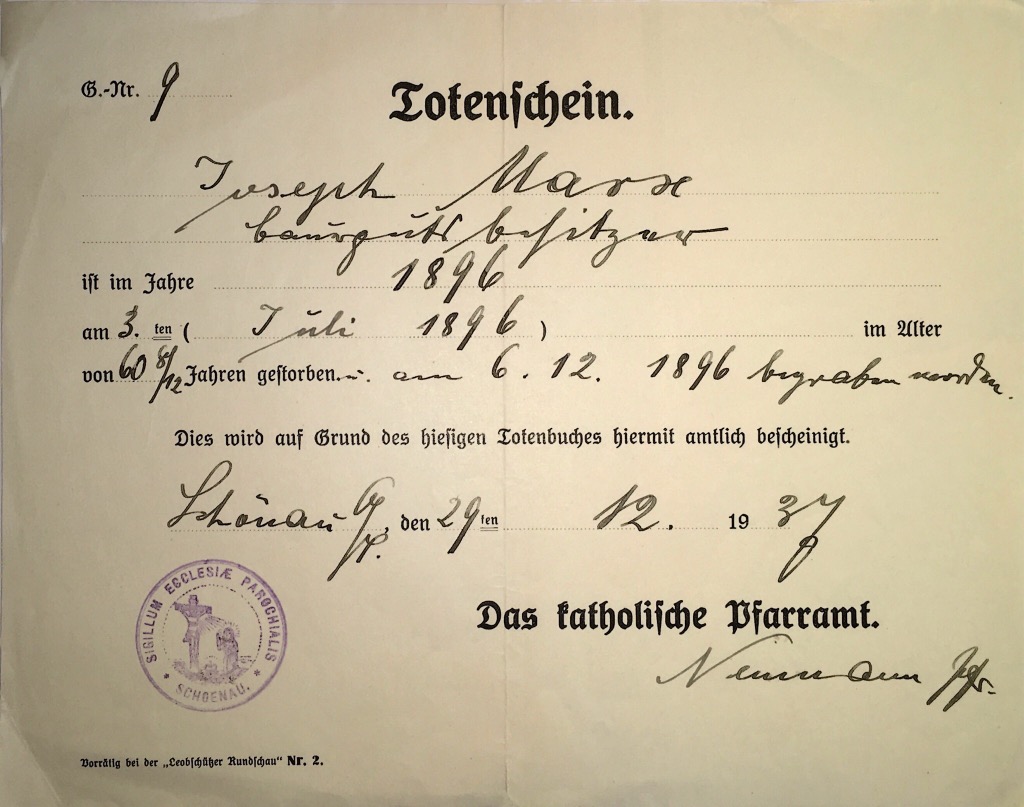 G.-Nr. 9
Totenschein.
Joseph Marx
baurgutsbesitzer
ist im Jahre 1896
am 3. ten ( Juli 1896 ) im Alter
von 60 8/12 Jahren gestorben u. am 6. 12. 1896 begraben worden.
Dies wird auf Grund des hiesigen Totenbuches hiermit amtlich bescheinigt.
Schönau, den 29ten 12. 1937
SIGILLUM ECCLESIÆ PAROCHIALIS
* SCHOENAU. *
Das katholische Pfarramt.
Neumann Pfr.
Vorrätig bei der „Leobschützer Rundschau“ Nr. 2.